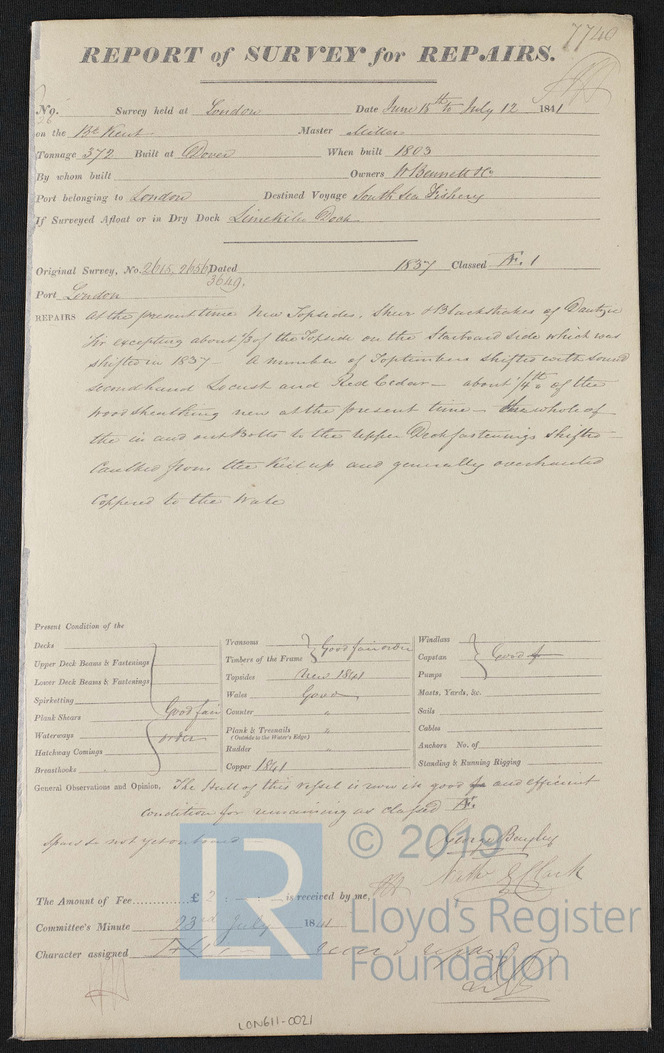 7740
REPORT of SURVEY for REPAIRS.
No. Survey held at London Date June 15th to July 12 1841
on the Bk Kent Master Miller
Tonnage 372 Built at Dover When built 1803
By whom built Owners W Bennett & Co
Port belonging to London Destined Voyage South Sea Fishery
If Surveyed Afloat or in Dry Dock Limekiln Dock
Original Survey, No. 2615, 2656 Dated 1837 Classed Æ. 1
3649.
Port London
REPAIRS At the present time New Topsides, Sheer & Blackstrakes of Dantzic
Fir excepting about 1/3 of the Topside on the Starboard side which was
shifted in 1837 - A number of Toptimbers shifted with sound
secondhand Locust and Red Cedar - about 1/4th of the
wood sheathing new at the present time - the whole of
the in and out Bolts to the Upper Deck fastenings shifted -
Caulked from the Keel up and generally overhauled
Coppered to the Wale
Present Condition of the
Decks
Upper Deck Beams & Fastenings
Lower Deck Beams & Fastenings
Spirketting
Plank Shears
Waterways
Hatchway Comings
Breasthooks
Good fair
order
Transoms
Timbers of the Frame
Good fair order
Topsides New 1841
Wales Good
Counter "
Plank & Treenails "
(Outside to the Water's Edge)
Rudder "
Copper 1841
Windlass
Capstan
Pumps
Good
Masts, Yards, &c.
Sails
Cables
Anchors No. of
Standing & Running Rigging
General Observations and Opinion. The Hull of this vessel is now in good and efficient
condition for remaining as classed Æ.
Spars &c not yet on board
George Bayley
Nathl G Clark
The Amount of Fee £ 2 : : — is received by me,
Committee's Minute 23rd July 1841
Character assigned
© 2019
LR
Lloyd's Register
Foundation
LON611-0021